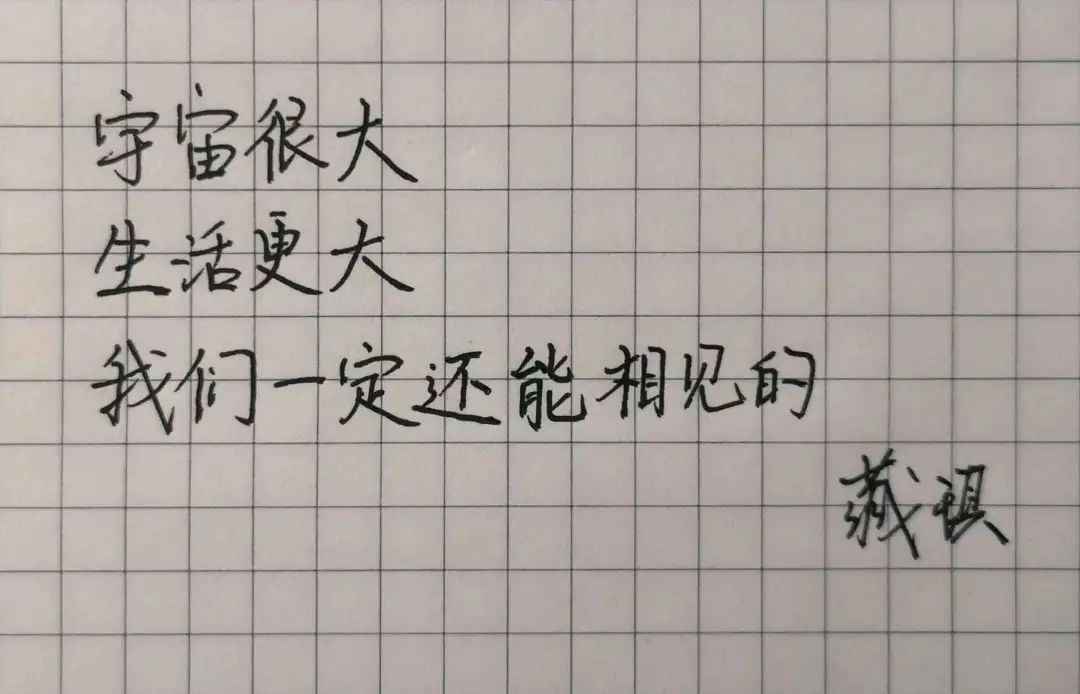 宇宙很大
生活更大
我们一定还能相见的
藏祺